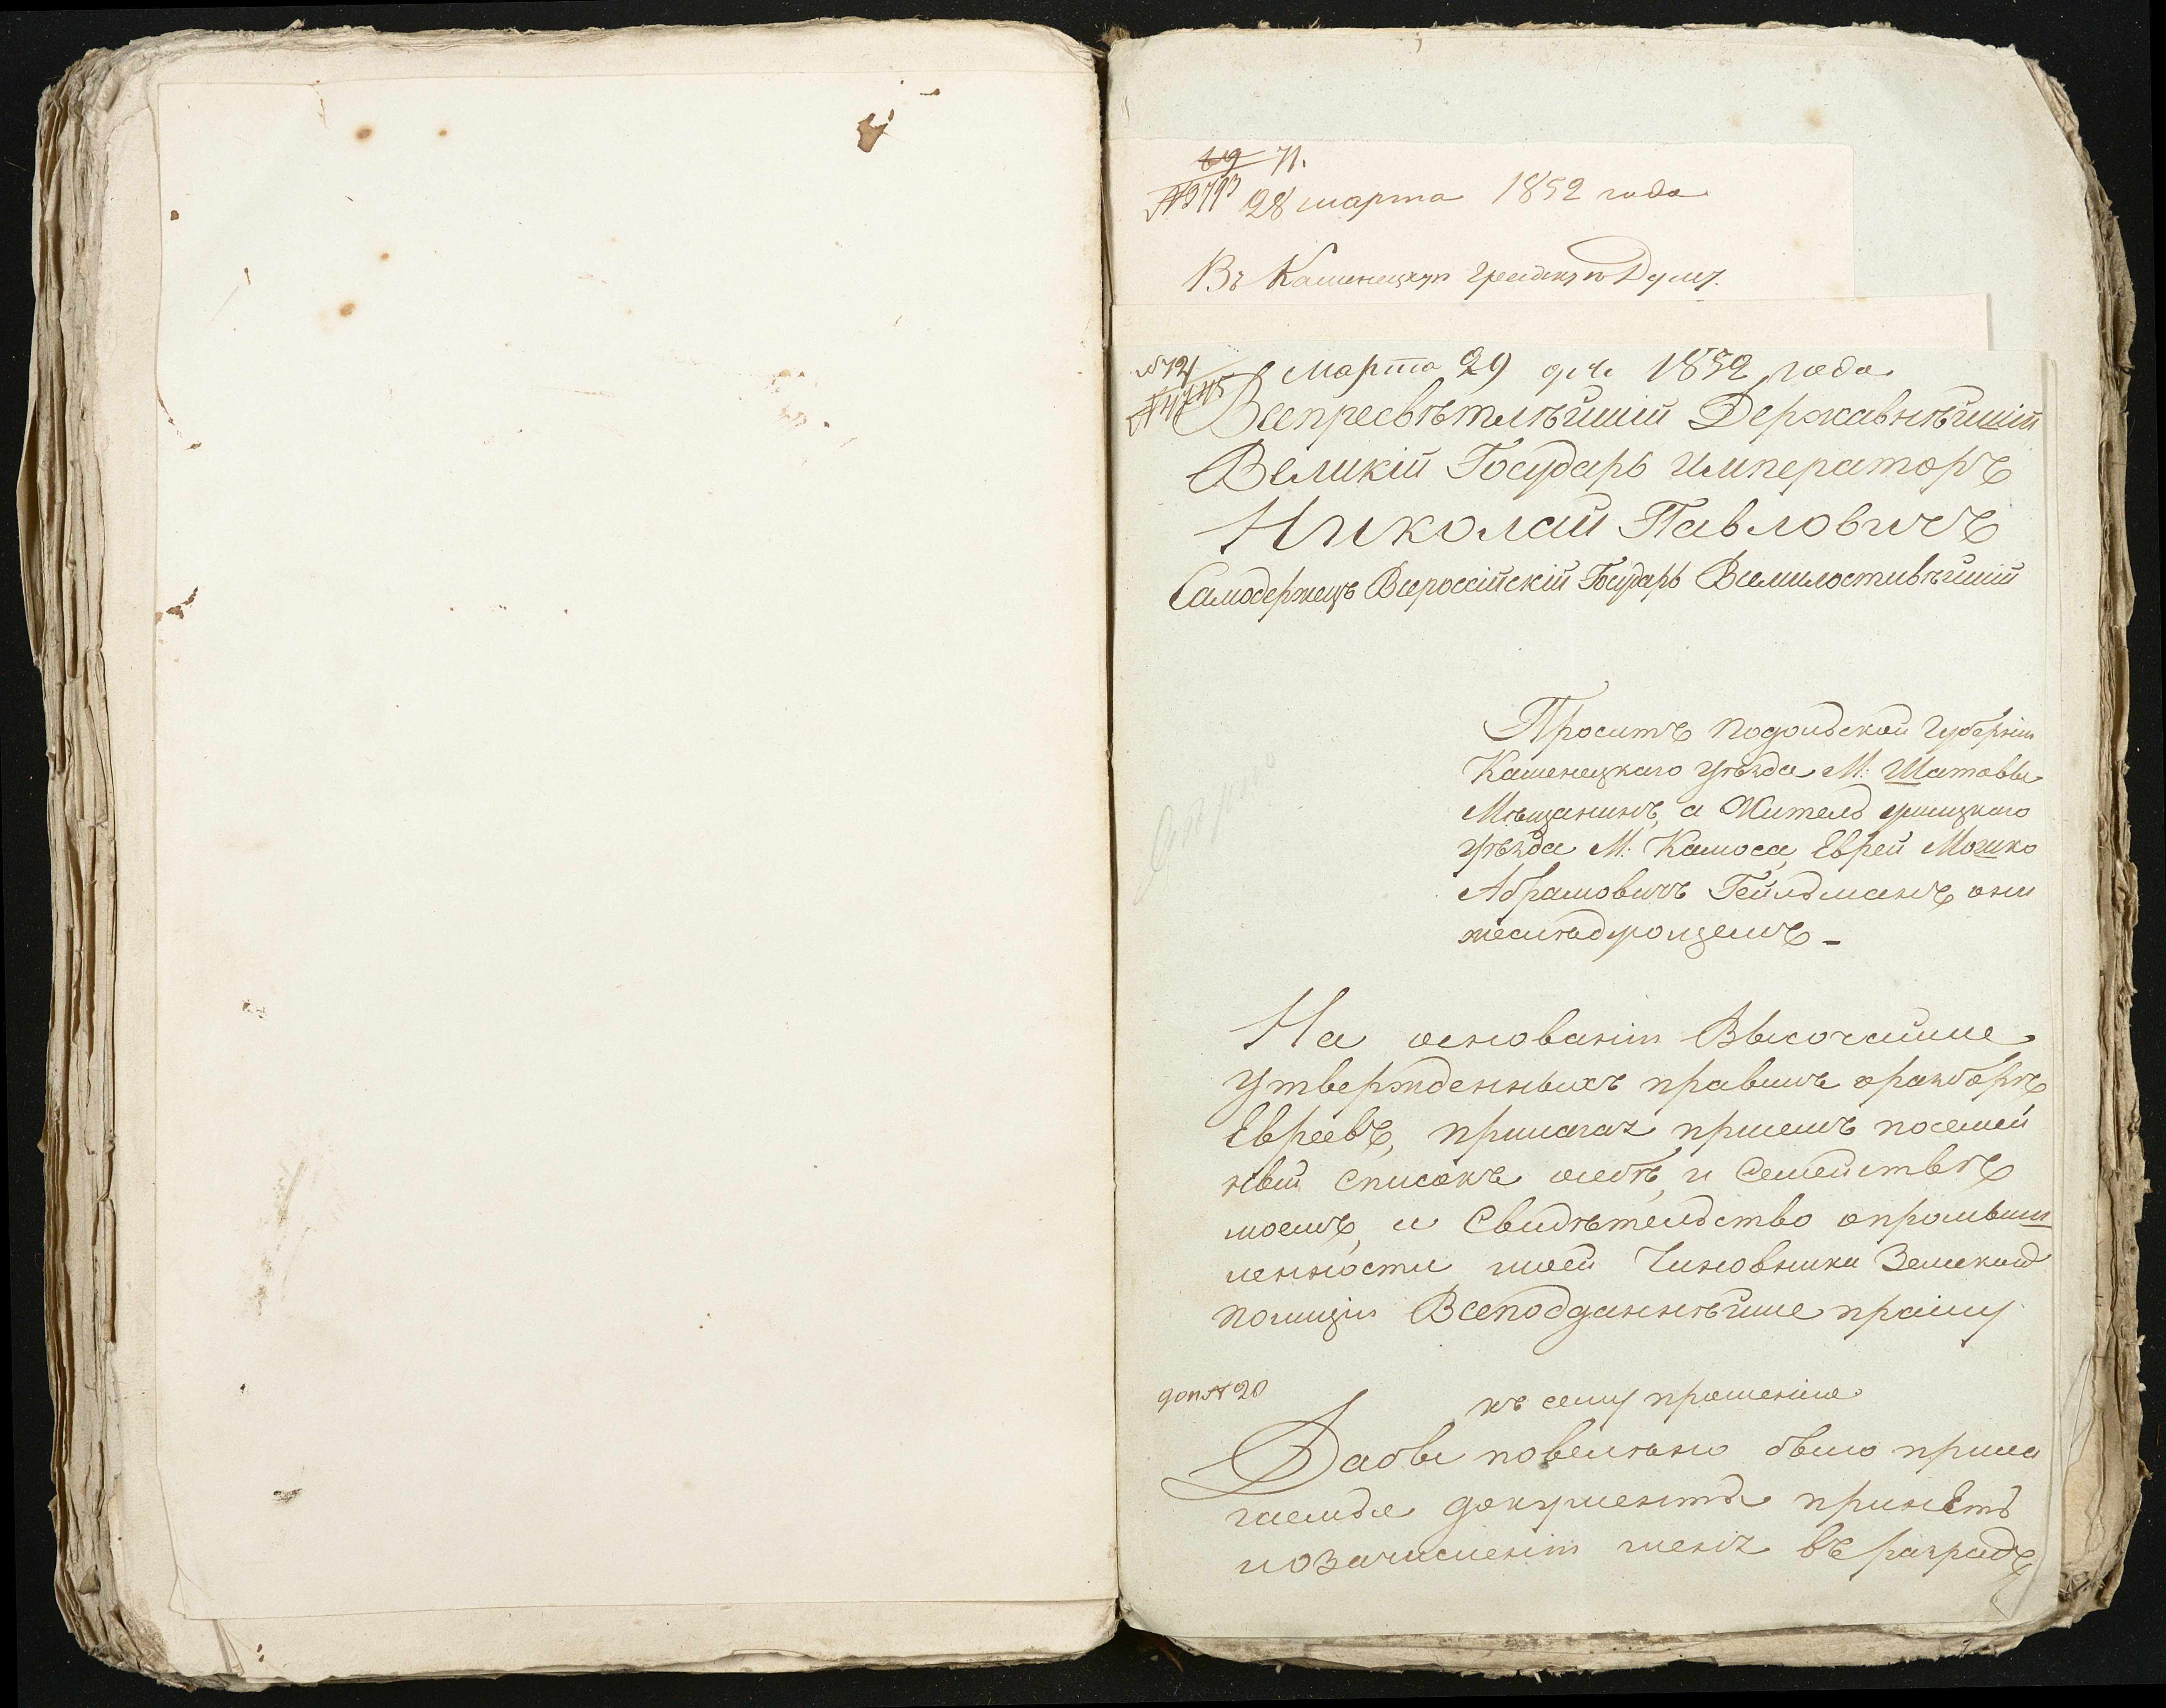 69 71.
№3793 28 марта 1852 года
Въ Каменецкую градскую Думу.
№72
Марта 29 дня 1852 года
№4745
Всепресвѣтлѣйшій Державнѣйшій
Великій Государь Императоръ
Николай Павловичъ
Самодержецъ Всероссійскій Государь Всемилостивѣйшій
Проситъ Подольской Губерніи
Каменецкаго уѣзда М: Шатавы
Мѣщанинъ, а Житель ушицкаго
уѣзда М: Калюса, Еврей Мошко
Абрамовичъ Гейльманъ они
жеслѣдующемъ _
На основаніи Высочайше
утвержденныхъ правилъ оразборѣ
Евреевъ, прилагая присемъ посемей
ный списокъ осебѣ, и Семействѣ
моемъ, и Свидѣтельство опромыш
ленности моей Чиновника Земской
полиціи Всеподданнѣйше прашу
доп № 20
къ сему прошенію
Дабы повелѣно было прила
гаемые документы принеть
иозачисленіи меня въ разрадъ